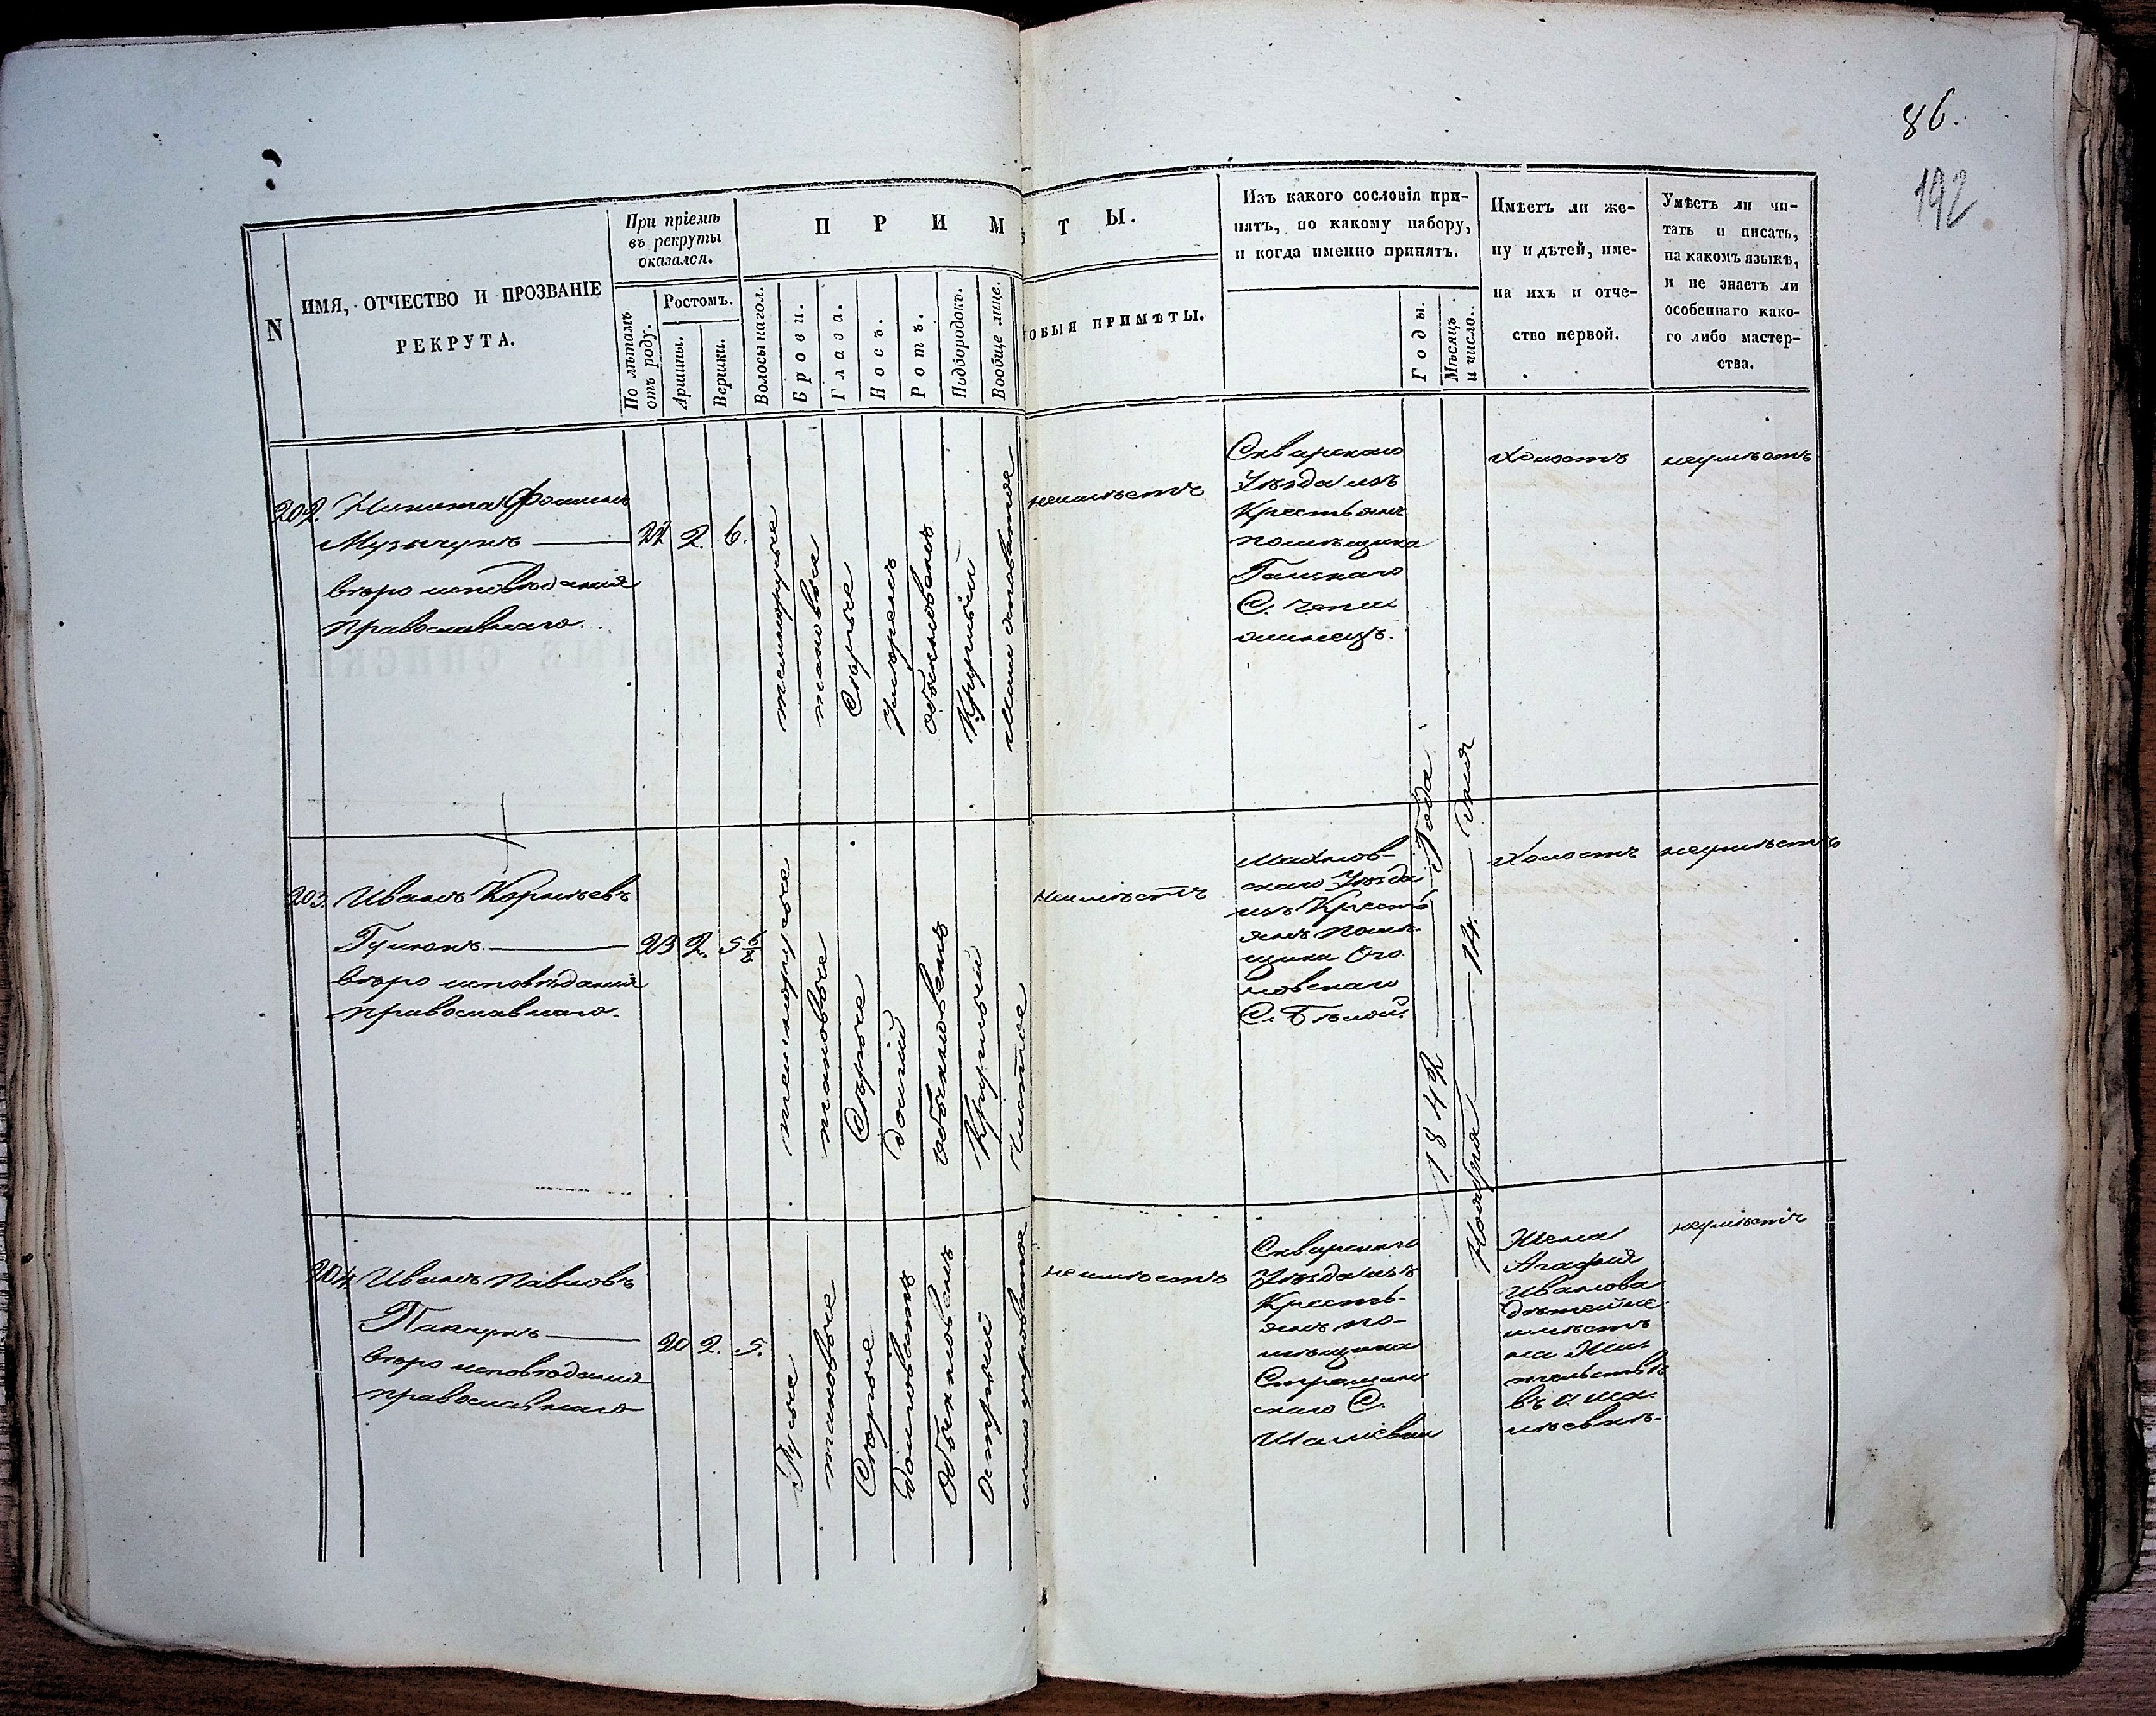 86.
192
N
ИМЯ, ОТЧЕСТВО И ПРОЗВАНІЕ
РЕКРУТА.
При пріемѣ
въ рекруты
оказался.
По лѣтамъ
отъ роду.
Ростомъ.
Аршины.
Вершки.
П Р И М Ѣ Т Ы.
Волосы на гол.
Брови.
Глаза.
Носъ.
Ротъ.
Подбородокъ.
Вообще лице.
ОБЫЯ ПРИМѢТЫ.
Изъ какого сословія при-
нятъ, по какому набору,
и когда именно принятъ.
Годы.
Мѣсяцъ
и число.
Имѣетъ ли же-
ну и дѣтей, име-
на ихъ и отче-
ство первой.
Умѣетъ ли чи-
тать и писать,
на какомъ языкѣ,
и не знаетъ ли
особеннаго како-
го либо мастер-
ства.
202. Никита Фоминъ
Музычукъ
вѣро исповѣданія
православнаго.
22 2. 6.
темнорусые
таковыи
Сѣрые
умѣренъ
обыкновенъ
Круглый
неимѣетъ
Сквирскаго
Уѣзда изъ
Крестьянъ
помѣщика
С.
Холостъ
неумѣетъ
203. Иванъ Корнѣевъ
вѣро исповѣданія
православнаго.
23 2. 5 6/8
темнорусые
таковые
Сѣрые
долгій
обыкновенъ
Круглый
Чистое
Неимѣетъ
Махнов-
скаго Уѣзда
изъ Кресть
янъ помѣ-
щика
С. Бѣлой.
Холостъ
неумѣетъ
1842 Года
Ноября 14. дня
204. Иванъ Павловъ
вѣро исповѣданія
православнаго
20 2. 5.
Русые
таковые
Сѣрые
долговатъ
Обыкновенъ
Острый
неимѣетъ
Сквирскаго
Уѣзда изъ
Кресть-
янъ по-
мѣщика
скаго С.
Жена
Агафія
Иванова
дѣтей не
имѣетъ
на Жи-
тельствѣ
неумѣетъ